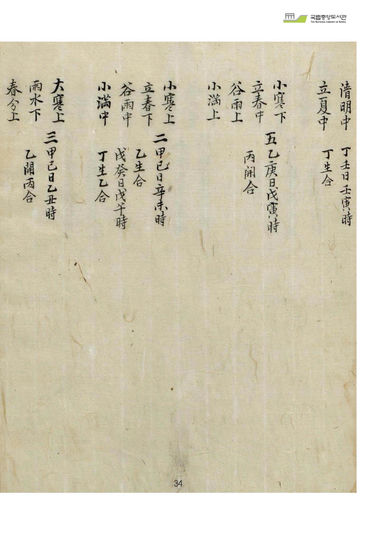 국립중앙도서관
淸明中 丁壬日壬寅時
立夏中 丁生合
小寒下
立春中 五乙庚日戊寅時
谷雨上 丙開合
小滿上
小寒上
立春下 二甲己日辛未時
谷雨中 乙生合
小滿中 戊癸日戊午時
丁生乙合
大寒上
雨水下 三甲己日乙丑時
春分上 乙開丙合
34